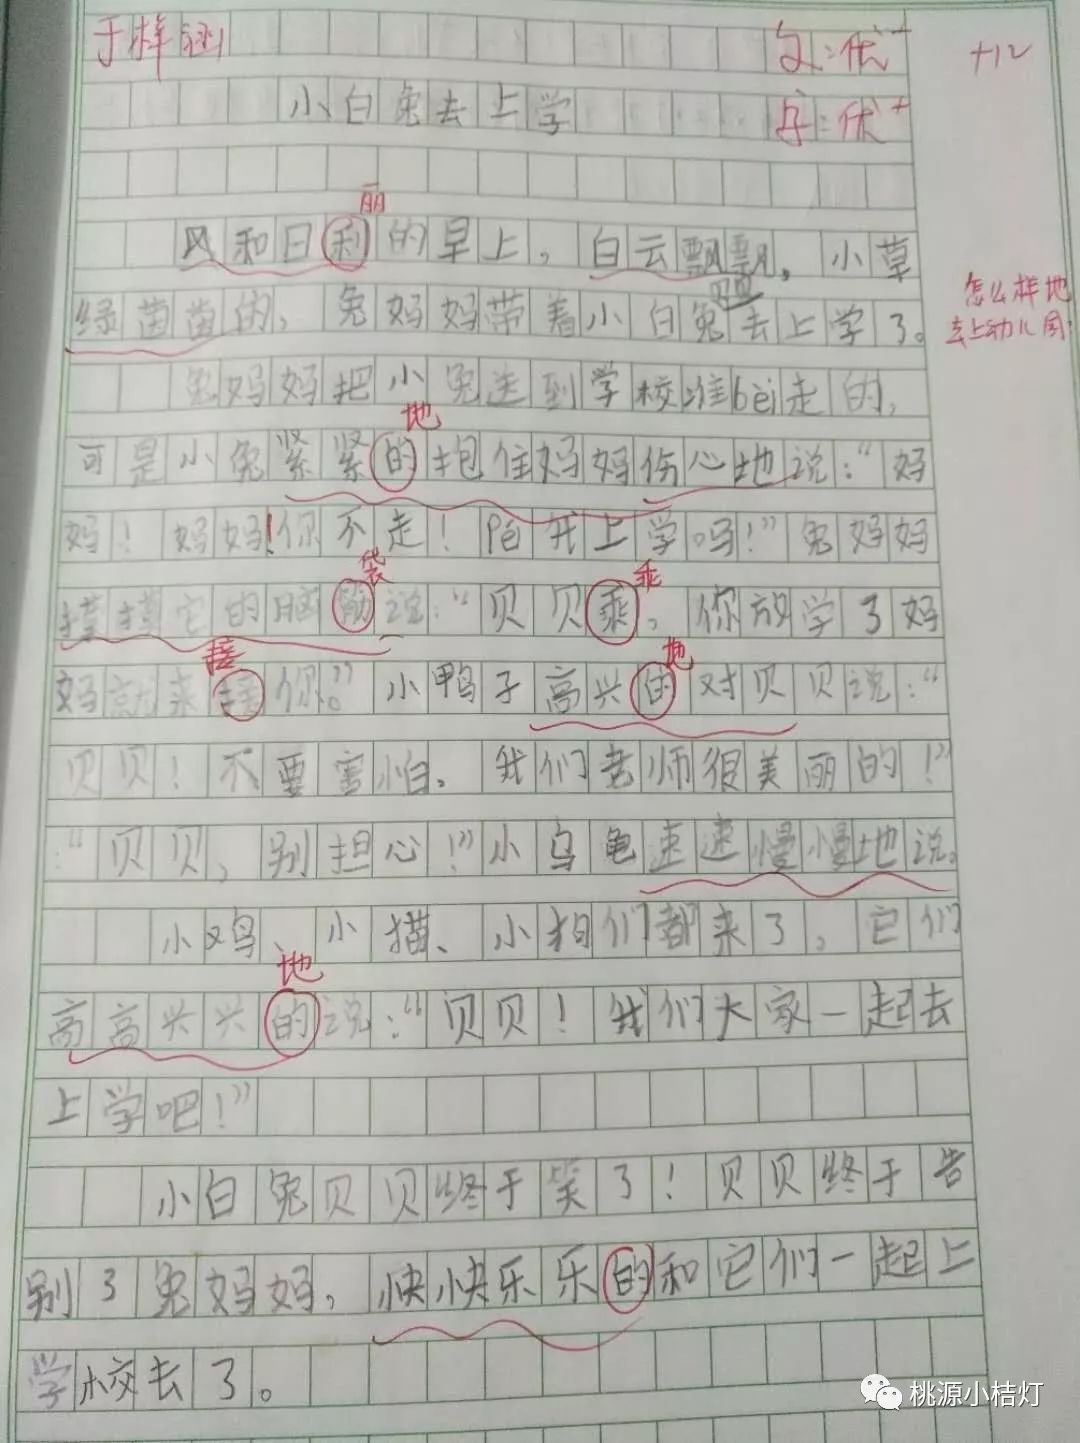 于样涵 文:优⁺
+12
小白兔去上学 字:优⁺
丽
风和日利的早上，白云飘飘，小草
绿茵茵的，兔妈妈带着小白兔去上学了。
怎么样地
去上幼儿园
兔妈妈把小兔送到学校准bèi走的，
地
可是小兔紧紧的抱住妈妈伤心地说：“妈
妈！妈妈！你不走！péi我上学吗！”兔妈妈
袋 乖
摸摸它的脑 说：“贝贝乘，你放学了妈
接 地
妈就来 你。”小鸭子高兴的对贝贝说：“
贝贝！不要害怕。我们老师很美丽的！”
“贝贝，别担心！”小乌龟速速慢慢地说。
小鸡、小猫、小狗们都来了，它们
地
高高兴兴的说：“贝贝！我们大家一起去
上学吧！”
小白兔贝贝终于笑了！贝贝终于告
别了兔妈妈，快快乐乐的和它们一起上
学校去了。
桃源小桔灯